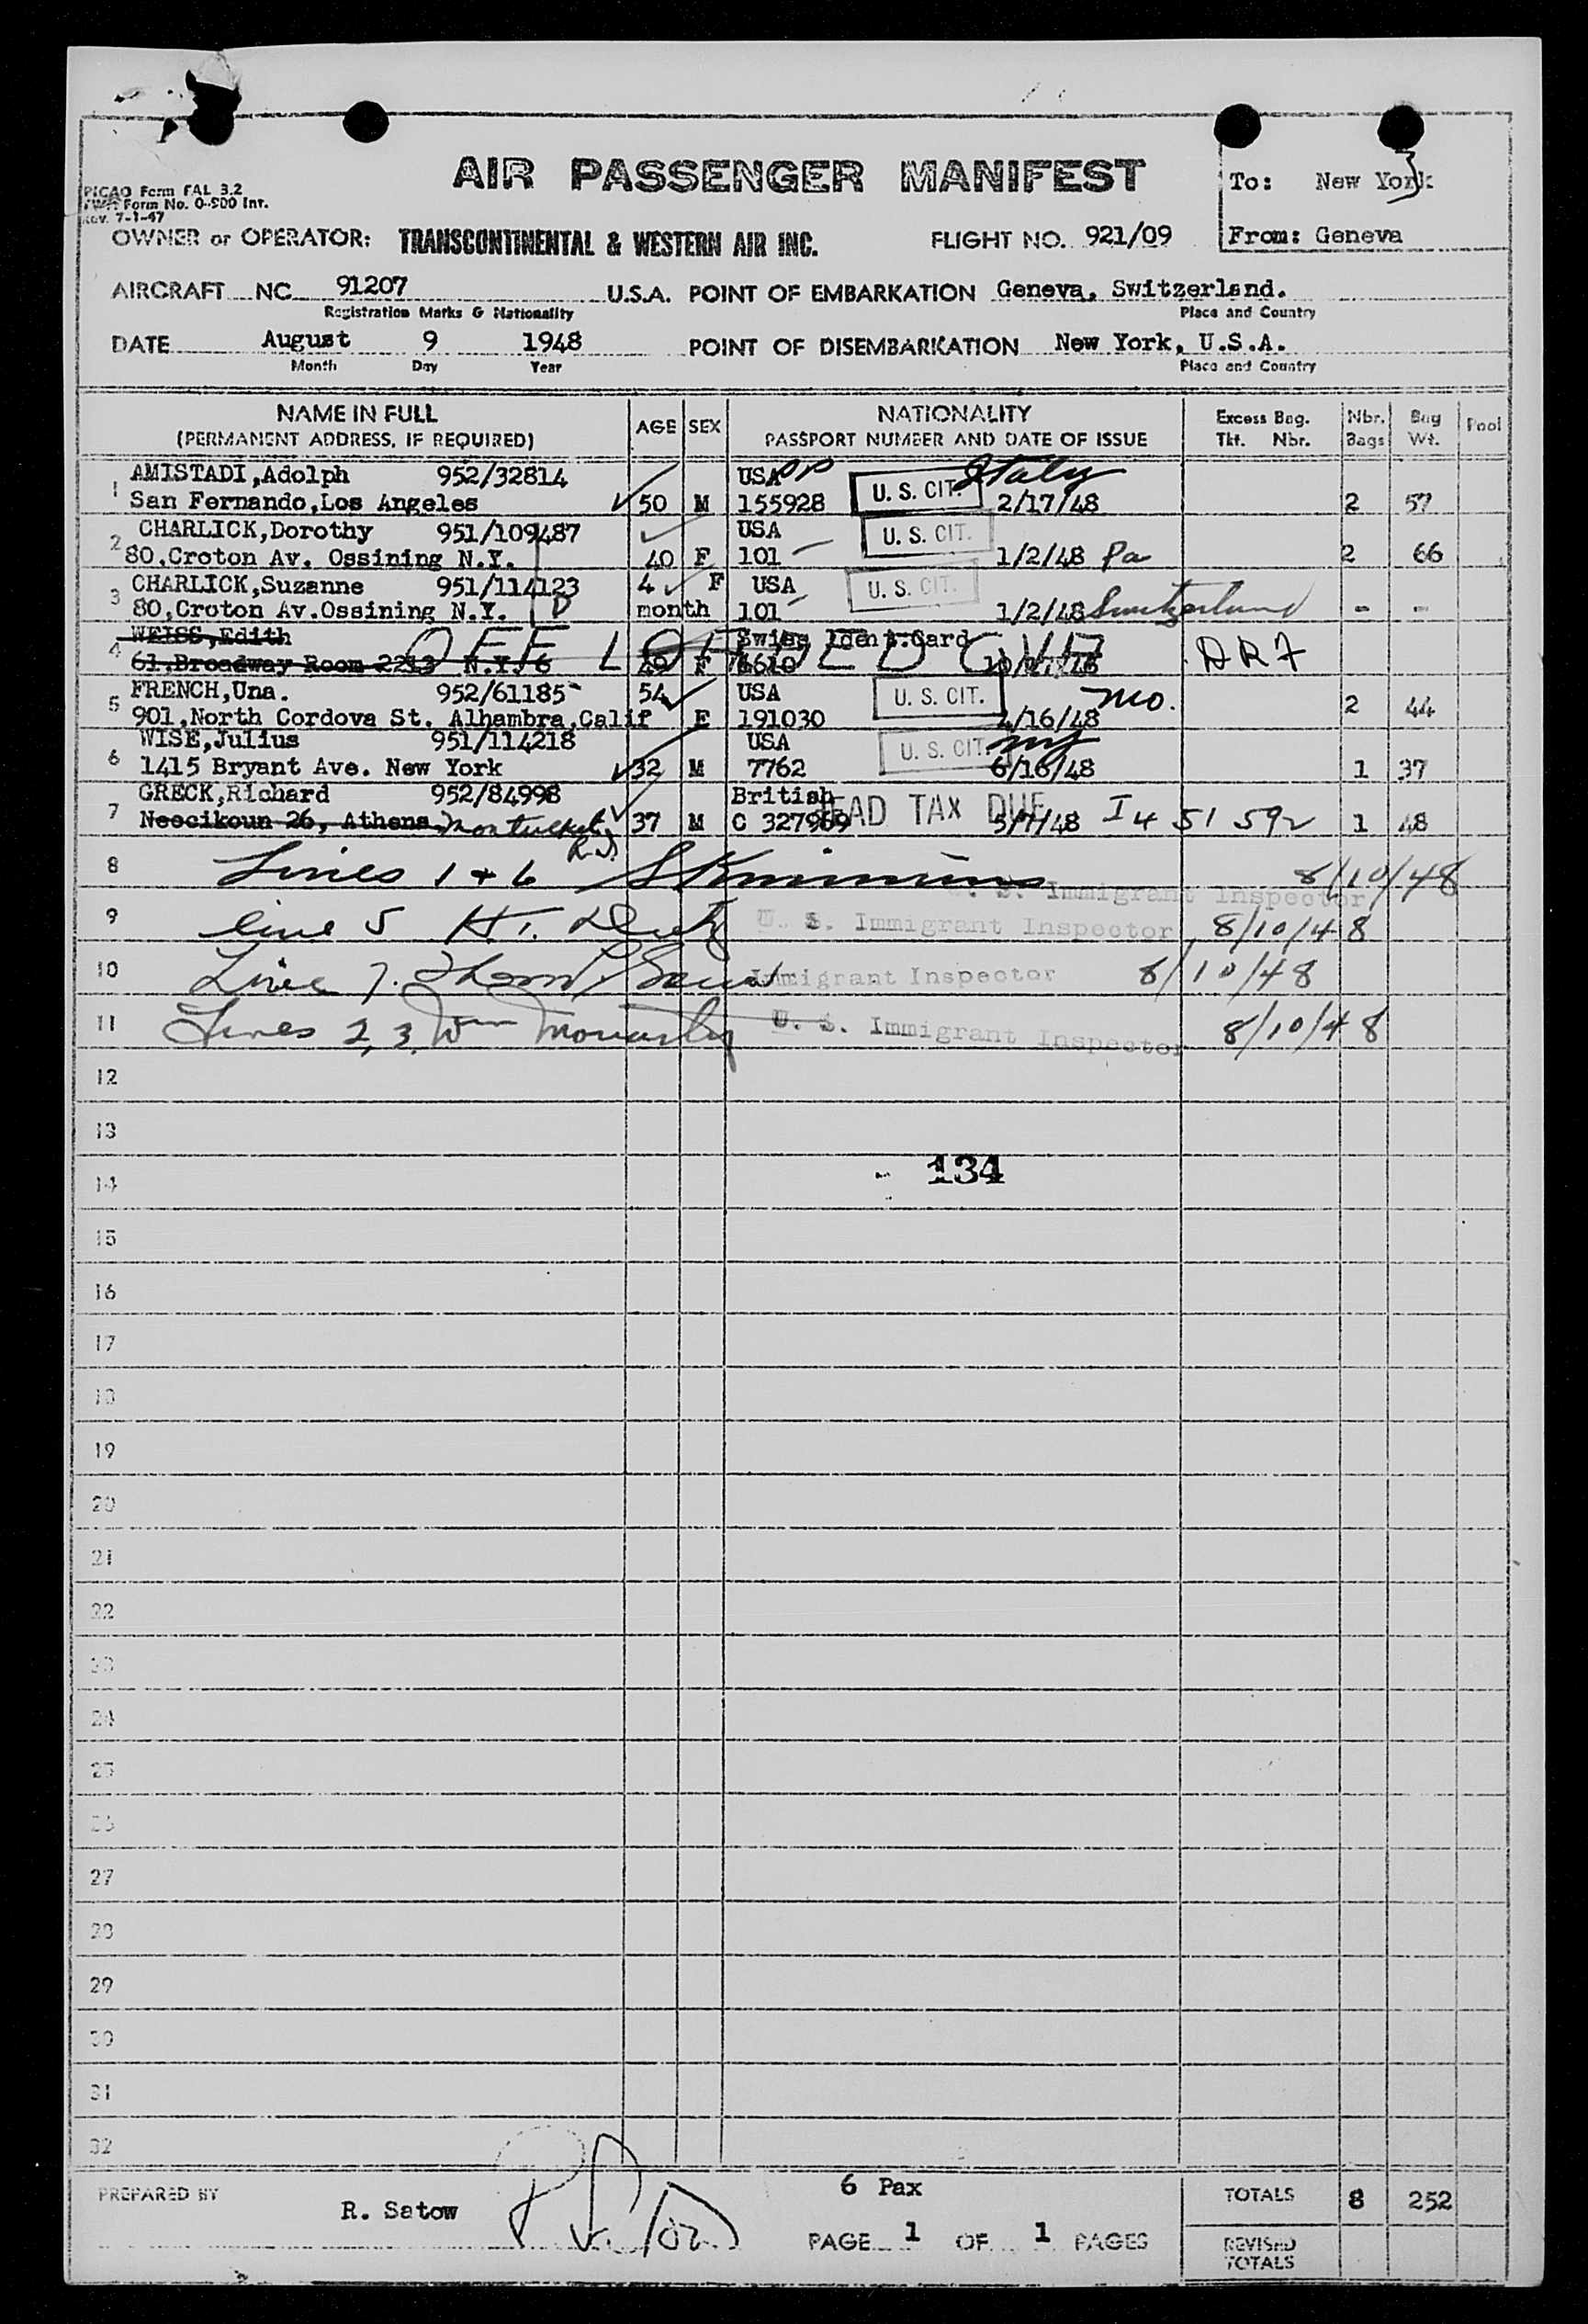 AIR PASSENGER MANIFEST
To: New York
3
PICAO Form FAL 3.2
TWA Form No. O-900 Int.
Rev. 7-1-47
OWNER or OPERATOR: TRANSCONTINENTAL & WESTERN AIR INC. FLIGHT NO. 921/09 From: Geneva
AIRCRAFT NC 91207 U.S.A. POINT OF EMBARKATION Geneva, Switzerland.
Registration Marks & Nationality Place and Country
DATE August 9 1948 POINT OF DISEMBARKATION New York, U.S.A.
Month Day Year Place and Country
NAME IN FULL AGE SEX NATIONALITY Excess Bag. Nbr. Bag Pool
(PERMANENT ADDRESS, IF REQUIRED) PASSPORT NUMBER AND DATE OF ISSUE Tkt. Nbr. Bags Wt.
AMISTADI,Adolph 952/32814 USA PP U. S. CIT. Italy
1 San Fernando,Los Angeles 50 M 155928 2/17/48 2 57
CHARLICK,Dorothy 951/109487 USA U. S. CIT.
2 80,Croton Av. Ossining N.Y. 40 F 101 1/2/48 Pa 2 66
CHARLICK,Suzanne 951/114123 4 F USA U. S. CIT.
3 80,Croton Av.Ossining N.Y. D month 101 1/2/48 Switzerland - -
WEISS,Edith Swiss Ident.Card
OFF LOADED GVA DRF
4 61.Broadway Room 2213 N.Y. 6 F
FRENCH,Una. 952/61185 54 USA U. S. CIT. Mo.
5 901,North Cordova St. Alhambra,Calif F 191030 4/16/48 2 44
WISE,Julius 951/114218 USA U. S. CIT. NY
6 1415 Bryant Ave. New York 32 M 7762 6/16/48 1 37
GRECK,Richard 952/84998 British HEAD TAX DUE
7 Neocikoun 26, Athens 37 M C 327969 5/7/48 I 451592 1 48
8 Lines 1 + 6 U. S. Immigrant Inspector 8/10/48
9 line 5 U. S. Immigrant Inspector 8/10/48
10 Line 7. Immigrant Inspector 8/10/48
11 Lines 2, 3, Wm Moriarty U. S. Immigrant Inspector 8/10/48
12
13
134
14
15
16
17
18
19
20
21
22
23
24
25
26
27
28
29
30
31
32
PREPARED BY R. Satow 6 Pax TOTALS 8 252
PAGE 1 OF 1 PAGES REVISED TOTALS